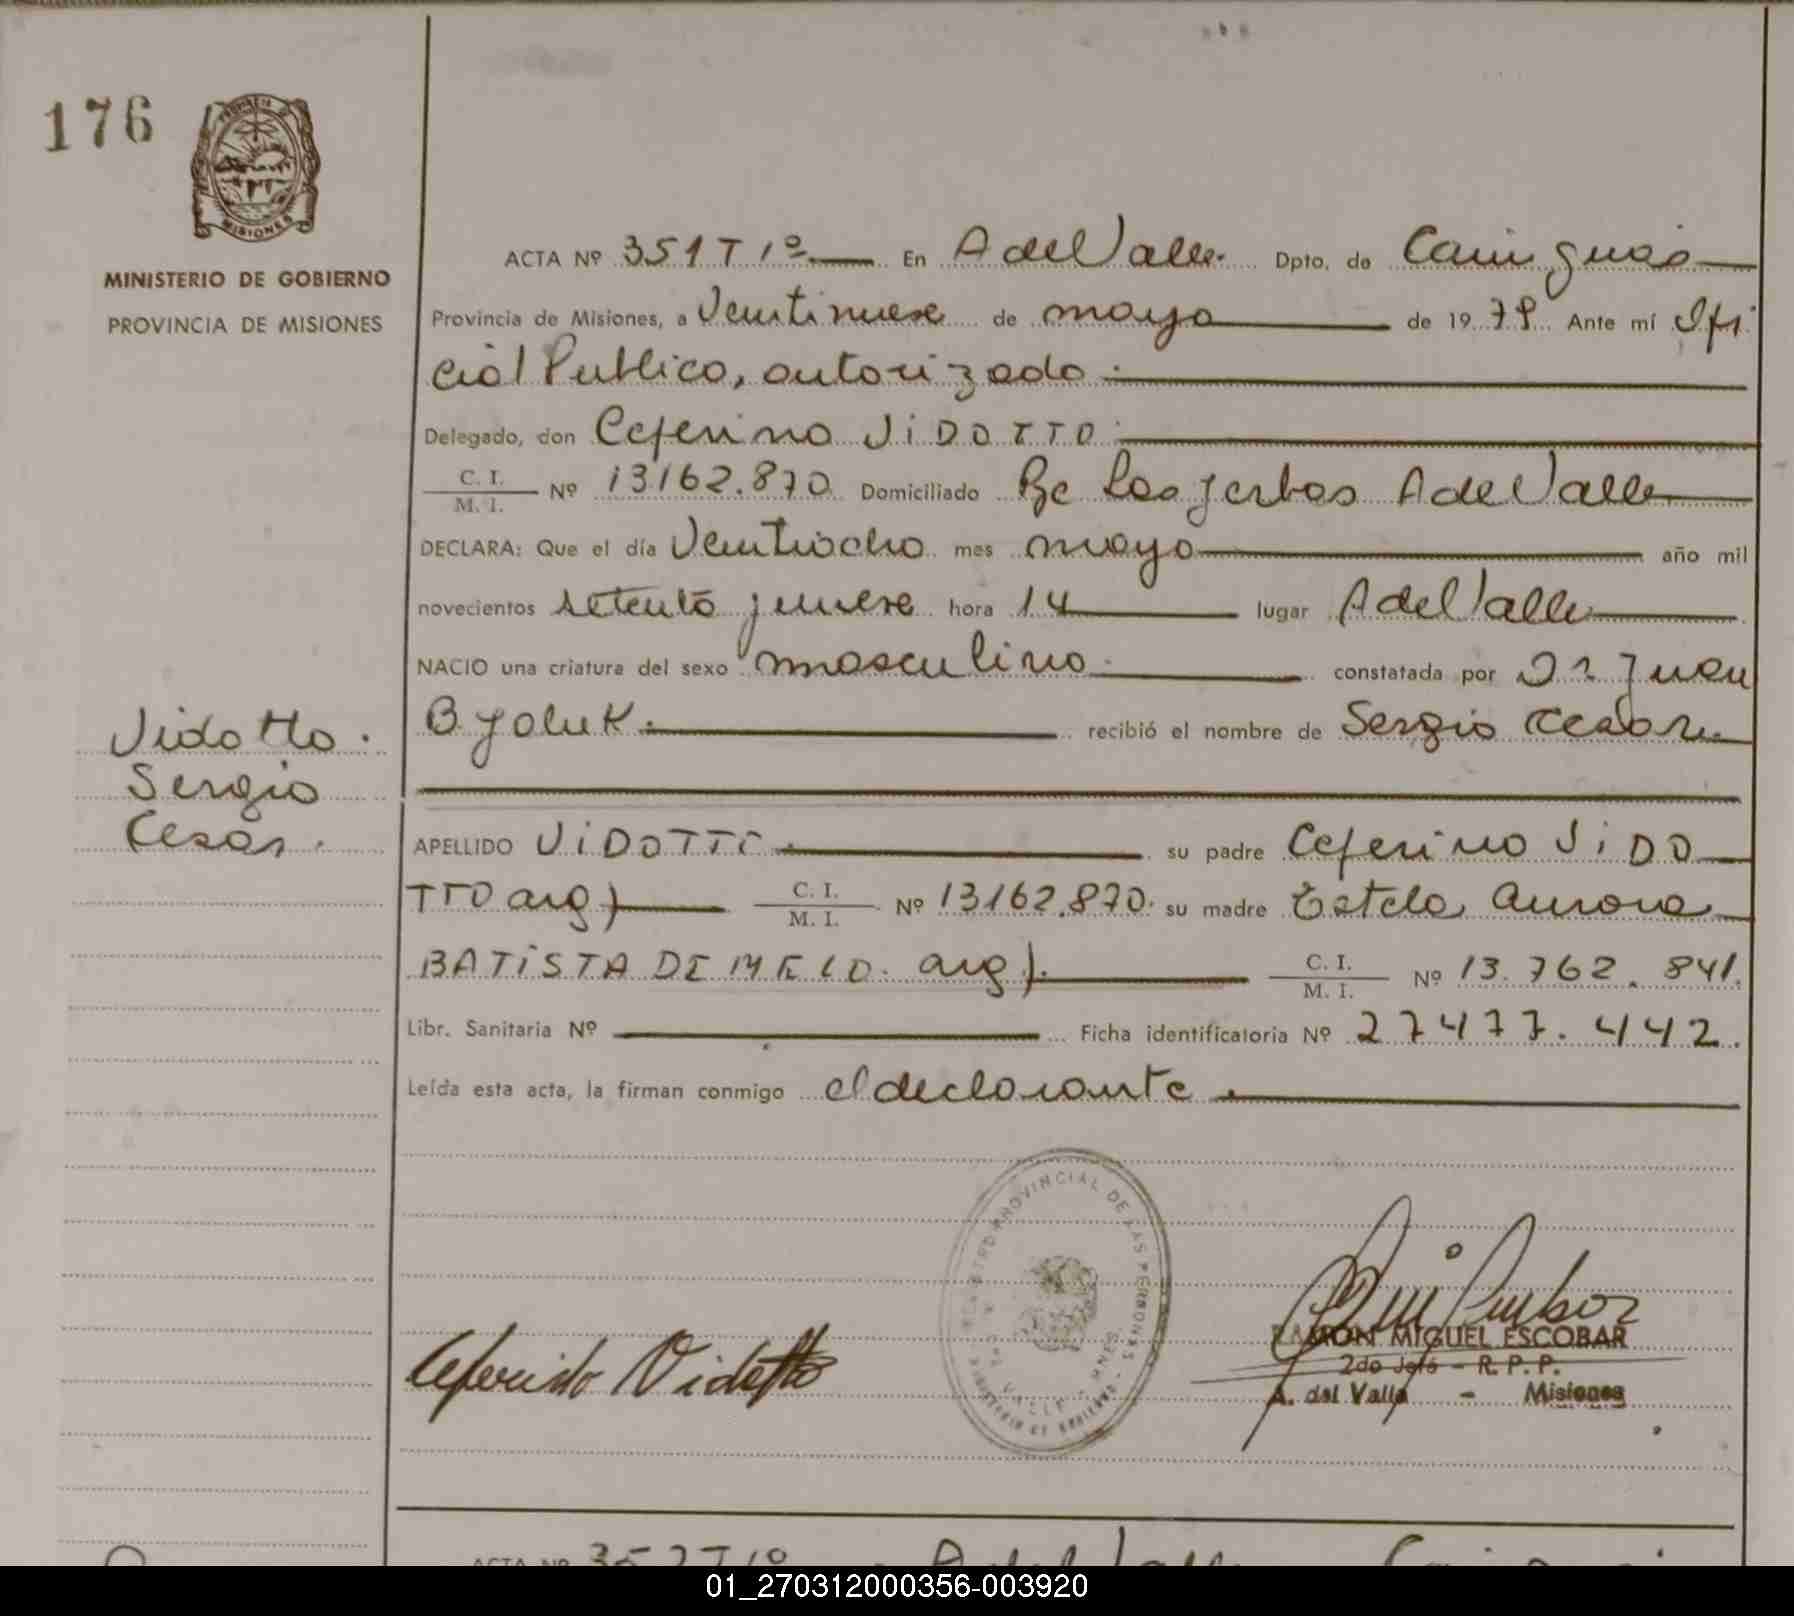 176
MINISTERIO DE GOBIERNO
PROVINCIA DE MISIONES
ACTA Nº 351 T 1º En A del Valle. Dpto. de Cainguás
Provincia de Misiones, a Ventinueve de mayo de 19 79 Ante mí Ofi
cial Publico, autorizado.
Delegado, don Ceferino ViDOTTO.
C. I.
M. I.
Nº 13162.870 Domiciliado Bc Las Jerbas A del Valle
DECLARA: Que el día Ventiocho mes mayo año mil
novecientos setenta y nueve hora 14 lugar A del Valle
NACIO una criatura del sexo masculino. constatada por Dr Juan
B Yoluk. recibió el nombre de Sergio Cesar.
Vidotto.
Sergio
Cesar.
APELLIDO ViDOTTO. su padre Ceferino ViDO
TTO arg) C. I.
M. I.
Nº 13162.870. su madre Estela Aurora
BATiSTA DE MELO. arg). C. I.
M. I.
Nº 13.762.841.
Libr. Sanitaria Nº Ficha identificatoria Nº 27477.442.
Leída esta acta, la firman conmigo el declarante.
PROVINCIAL DE LAS PERSONAS
VALLE - MNES.
MINISTERIO DE GOBIERNO
Ceferino Vidotto
RAMON MIGUEL ESCOBAR
2do Jefe - R. P. P.
A. del Valle - Misiones
ACTA Nº 352 T 1º A del Valle
01_270312000356-003920